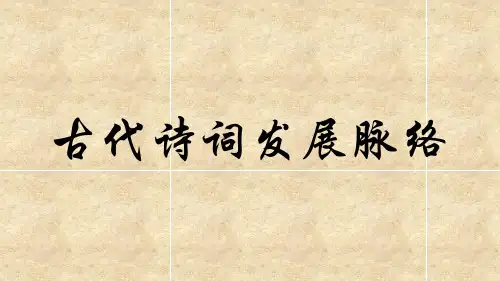 古代诗词发展脉络